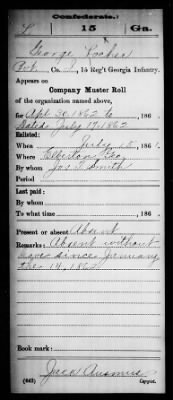 Confederate.
L 15 Ga.
George
Pvt., Co. , 15 Reg't Georgia Infantry.
Appears on
Company Muster Roll
of the organization named above,
for Apr 30, 1862 to 186 .
Dated July 17, 1862
Enlisted:
When July 15 , 186 .
Where Elberton, Geo.
By whom Jas. Smith
Period
Last paid:
By whom
To what time , 186 .
Present or absent Absent
Remarks: Absent without
leave since January
14, 186
Book mark:
(642) Copyist.